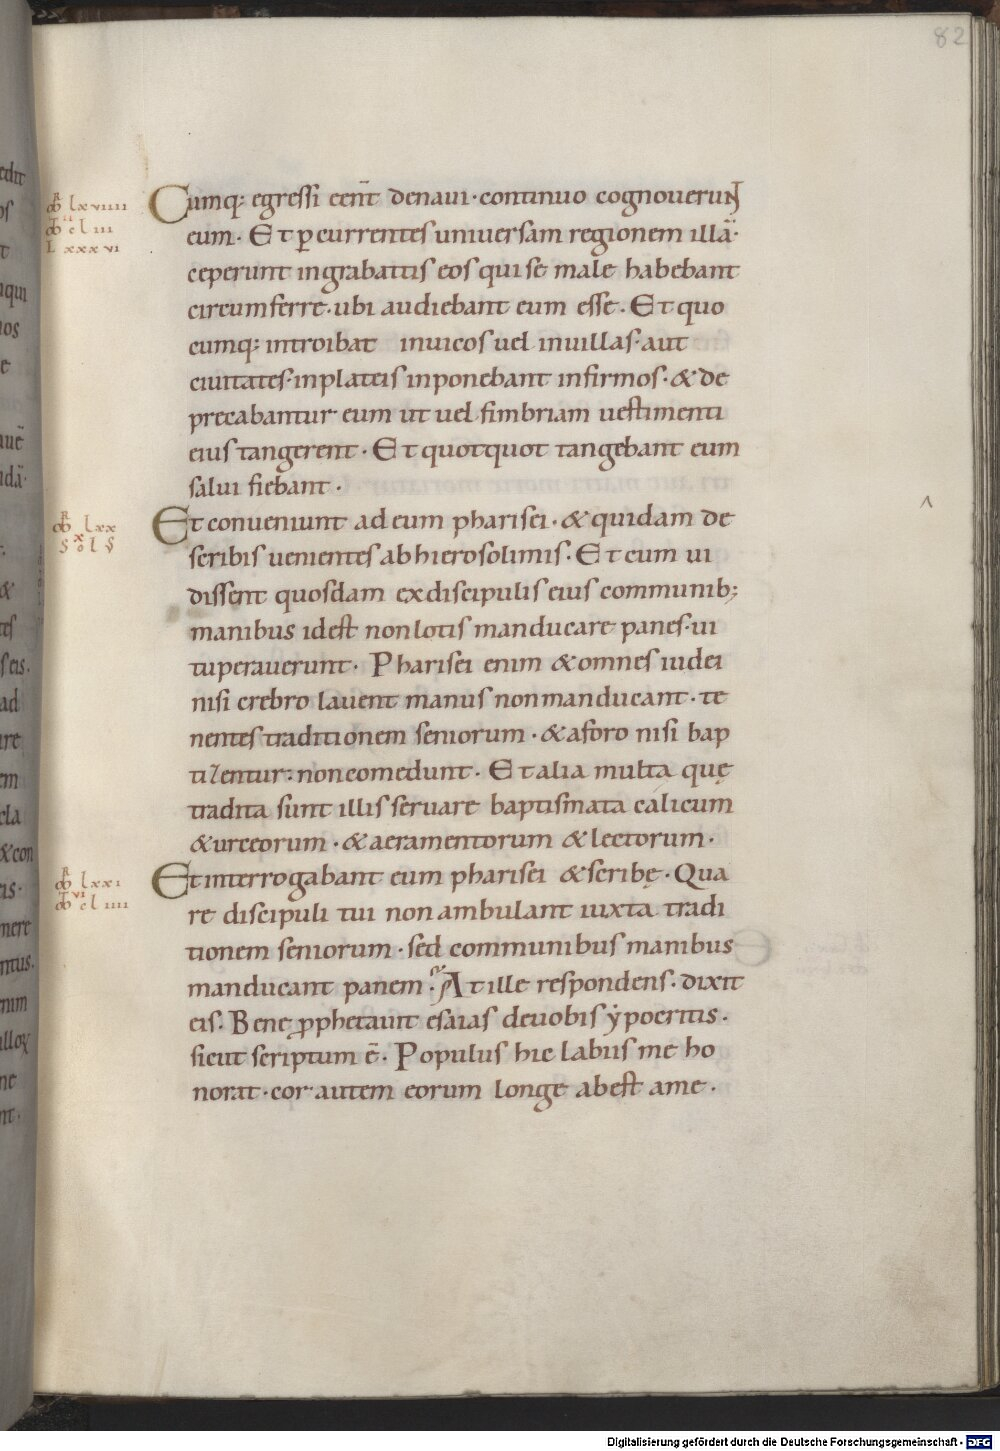 82
Cumq; egressi eēnt denaui · continuo cognouerunt
eum · Et ꝑcurrentes uniuersam regionem illā ·
ceperunt ingrabattis eos qui se male habebant
circumferre · ubi audiebant eum esse · Et quo
cumq; introibat inuicos uel inuillas · aut
ciuitates · inplateis inponebant infirmos · & de
precabantur eum ut uel fimbriam uestimenti
eius tangerent · Et quotquot tangebant eum
salui fiebant ·
Et conueniunt ad eum pharisei · & quidam de
scribis uenientes abhierosolimis · Et cum ui
dissent quosdam exdiscipulis eius communib;
manibus idest nonlotis manducare panes · ui
tuperauerunt · Pharisei enim & omnes iudei
nisi crebro lauent manus nonmanducant · te
nentes traditionem seniorum · & aforo nisi bap
tizentur : noncomedunt · Et alia multa quę
tradita sunt illis seruare baptismata calicum
& urceorum · & aeramentorum & lectorum ·
Et interrogabant eum pharisei & scribę · Qua
re discipuli tui non ambulant iuxta tradi
tionem seniorum · sed communibus manibus
manducant panem · At ille respondens · dixit
eis · Bene ꝓphetauit esaias deuobis ẏpocritis ·
sicut scriptum ē · Populus hic labiis me ho
norat · cor autem eorum longe abest ame ·
lxviiii
cliii
lxxxvi
lxx
lxxi
cliiii
Digitalisierung gefördert durch die Deutsche Forschungsgemeinschaft - DFG